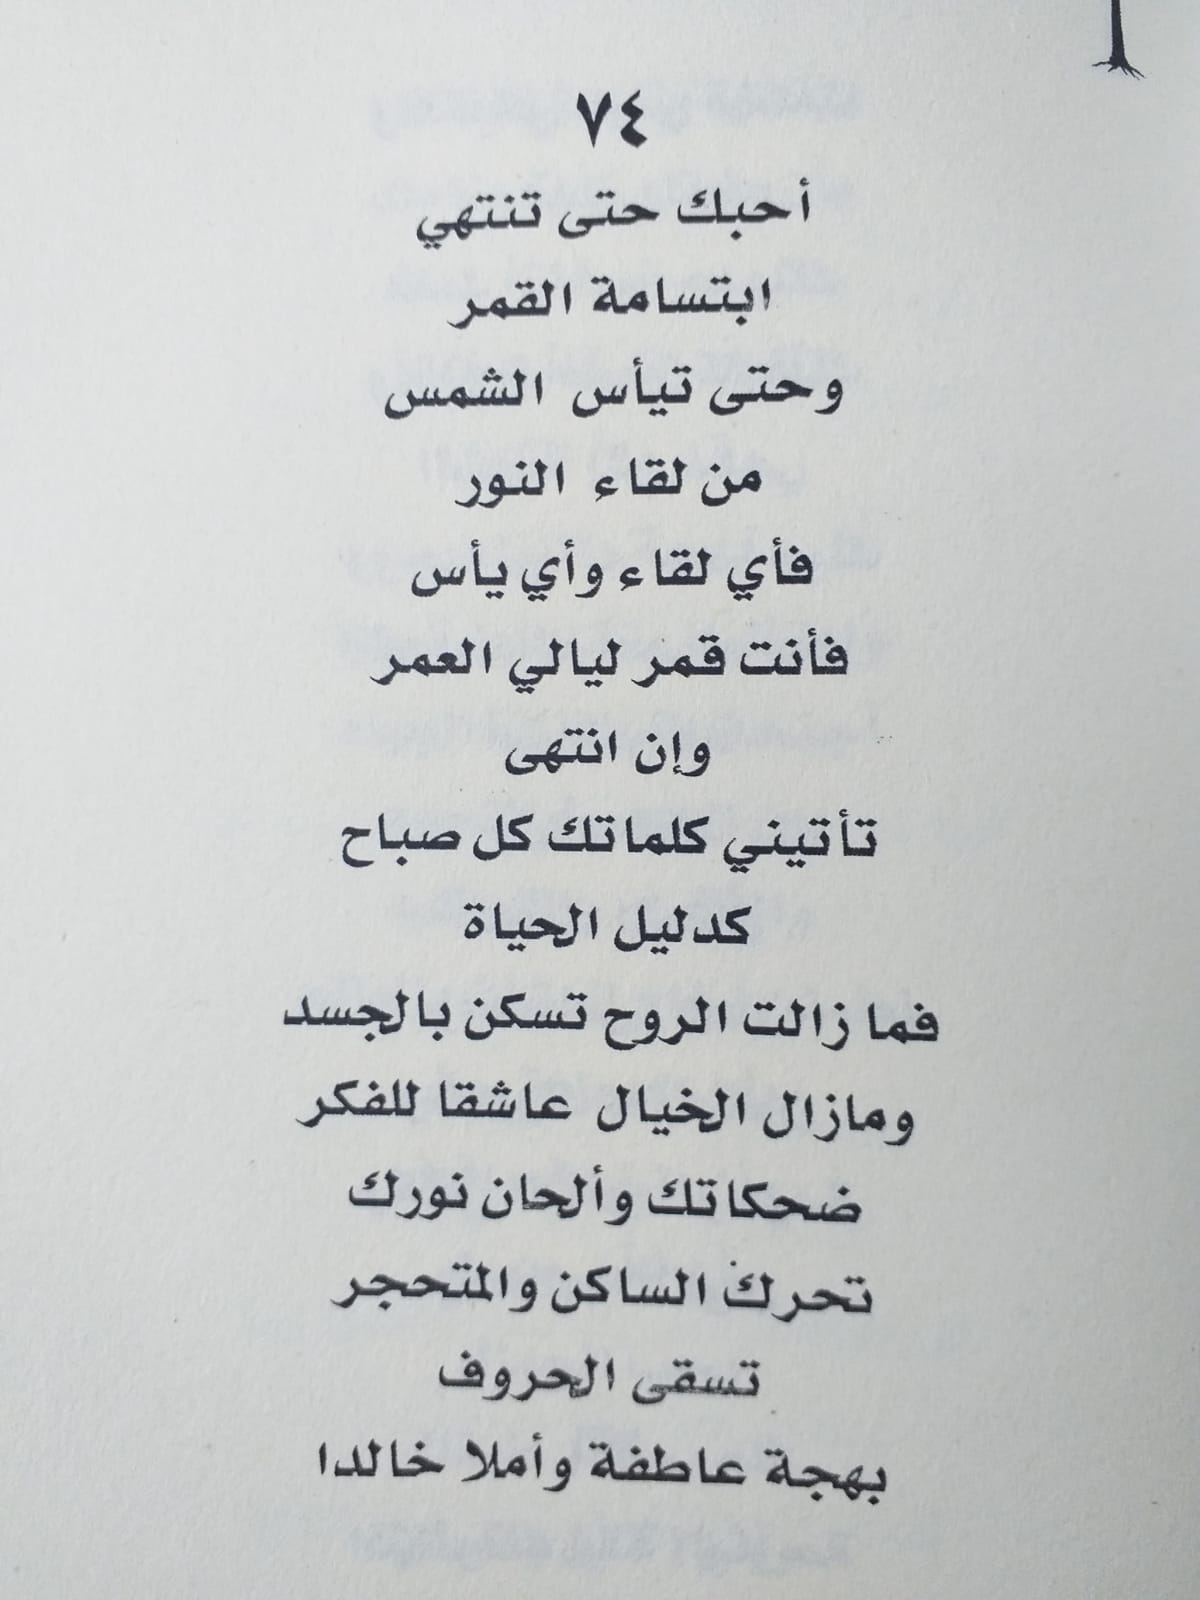 ٧٤
أحبك حتى تنتهي
ابتسامة القمر
وحتى تيأس الشمس
من لقاء النور
فأي لقاء وأي يأس
فأنت قمر ليالي العمر
وإن انتهى
تأتيني كلماتك كل صباح
كدليل الحياة
فما زالت الروح تسكن بالجسد
ومازال الخيال عاشقا للفكر
ضحكاتك وألحان نورك
تحرك الساكن والمتحجر
تسقى الحروف
بهجة عاطفة وأملا خالدا